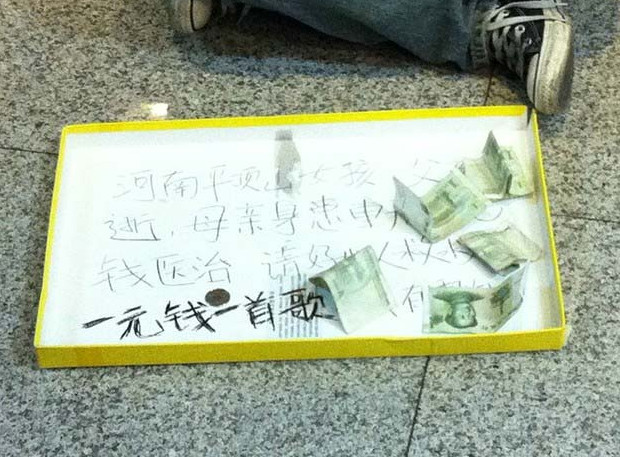 河南平顶山女孩 父
逝，母亲身患
钱医治 请好 人
有
一元钱一首歌